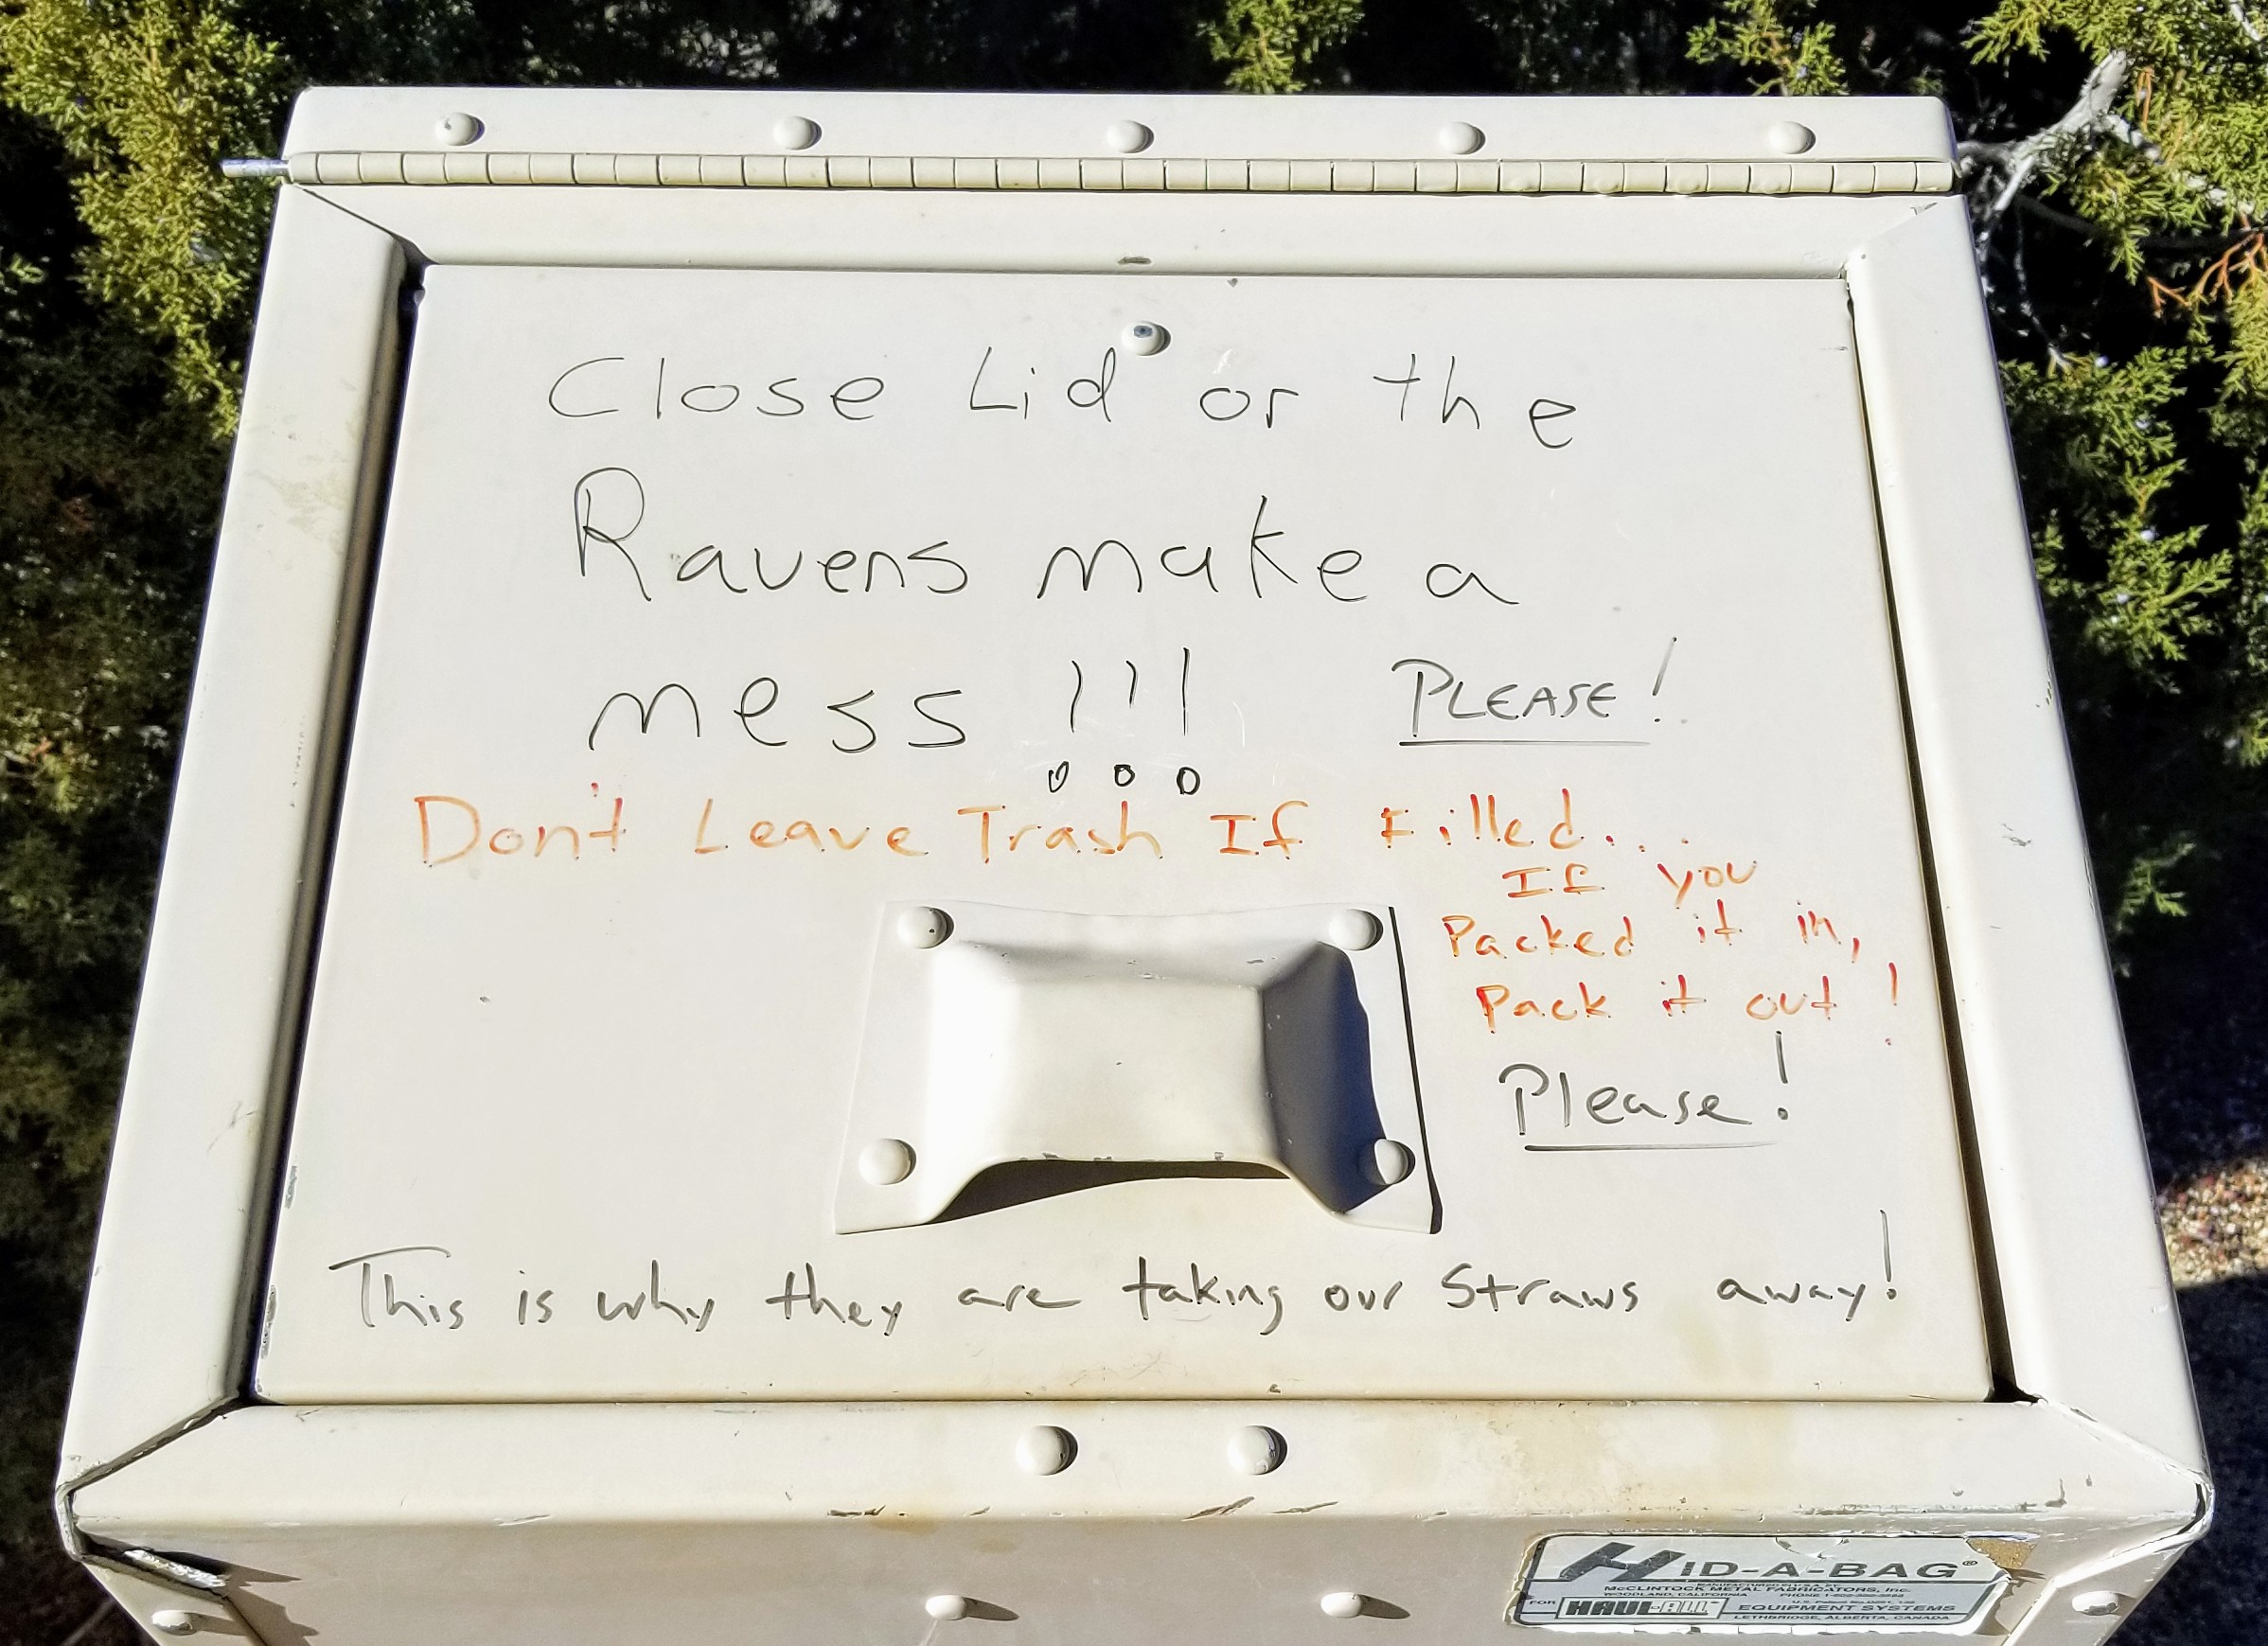 Close Lid or the
Ravens make a
mess !!!
PLEASE!
Don't Leave Trash If Filled...
If you
Packed it in,
Pack it out!
Please!
This is why they are taking our Straws away!
HID-A-BAG®
McCLINTOCK METAL FABRICATORS, Inc.
WOODLAND, CALIFORNIA
FOR HAUL-ALL
EQUIPMENT SYSTEMS
LETHBRIDGE, ALBERTA, CANADA